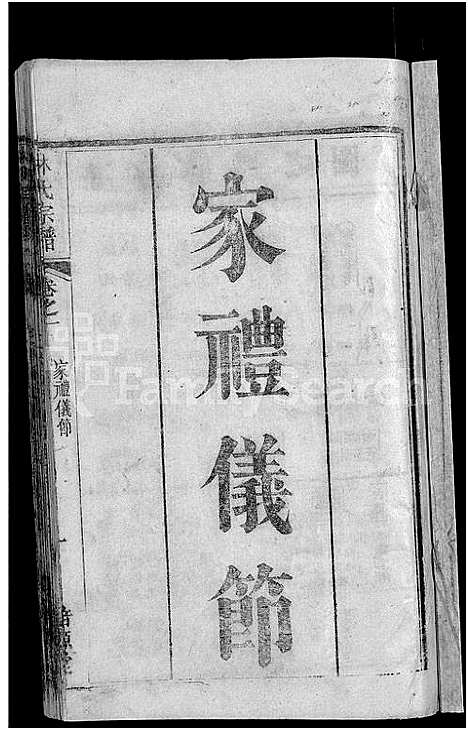 家禮儀節
林氏宗譜
卷之一
家禮儀節
FamilySearch